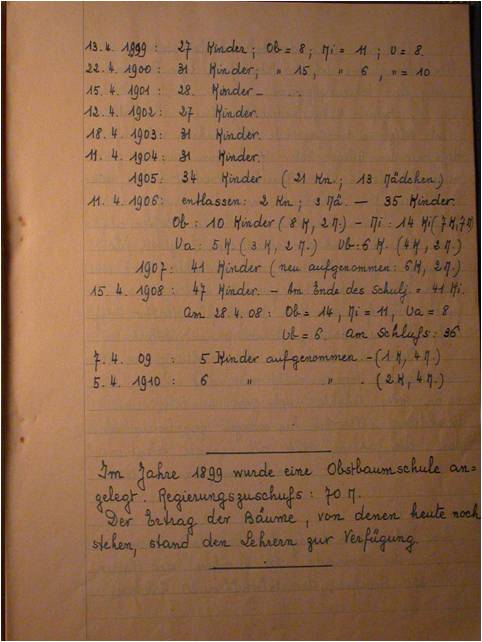 13.4. 1999: 27 Kinder; Ob = 8; Mi = 11; U = 8.
22.4. 1900: 31 Kinder; " 15, " 6, " = 10
15.4. 1901: 28. Kinder -
12.4. 1902: 27 Kinder.
18.4. 1903: 31 Kinder.
11.4. 1904: 31 Kinder.
1905: 34 Kinder (21 Kn.; 13 Mädchen.)
11.4. 1906: entlassen: 2 Kn; 3 Mä. — 35 Kinder.
Ob: 10 Kinder (8 K, 2 M.) - Mi: 14 Ki (7 K, 7 M)
Ua: 5 K. (3 K, 2 M.) Ub: 6 K. (4 K, 2 M.)
1907: 41 Kinder (neu aufgenommen: 6 K, 2 M.)
15.4. 1908: 47 Kinder. - Am Ende des Schulj = 41 Ki.
Am 28.4.08: Ob = 14, Mi = 11, Ua = 8
Ub = 6. Am Schluß: 36
7.4. 09 : 5 Kinder aufgenommen - (1 K, 4 M.)
5.4. 1910: 6 " " . (2 K, 4 M.)
Im Jahre 1899 wurde eine Obstbaumschule an=
gelegt. Regierungszuschuß: 70 M.
Der Ertrag der Bäume, von denen heute noch
stehen, stand den Lehrern zur Verfügung.